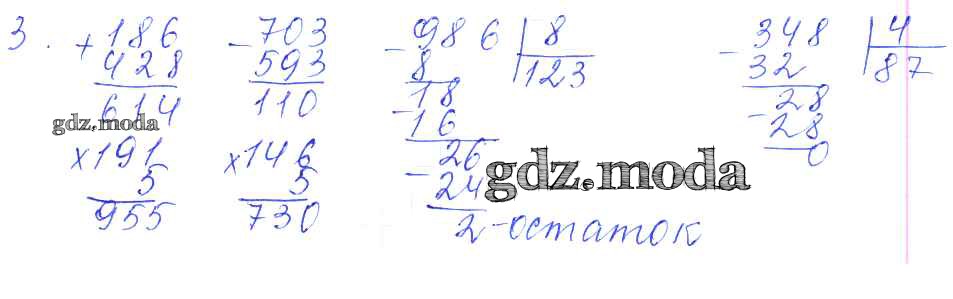 3. +186 -703 -986 | 8 -348 | 4
428 593 8 123 32 87
614 110 18 -28
gdz.moda
-16 28
×191 ×146 26 0
5 5 -24
gdz.moda
955 730 2 - остаток